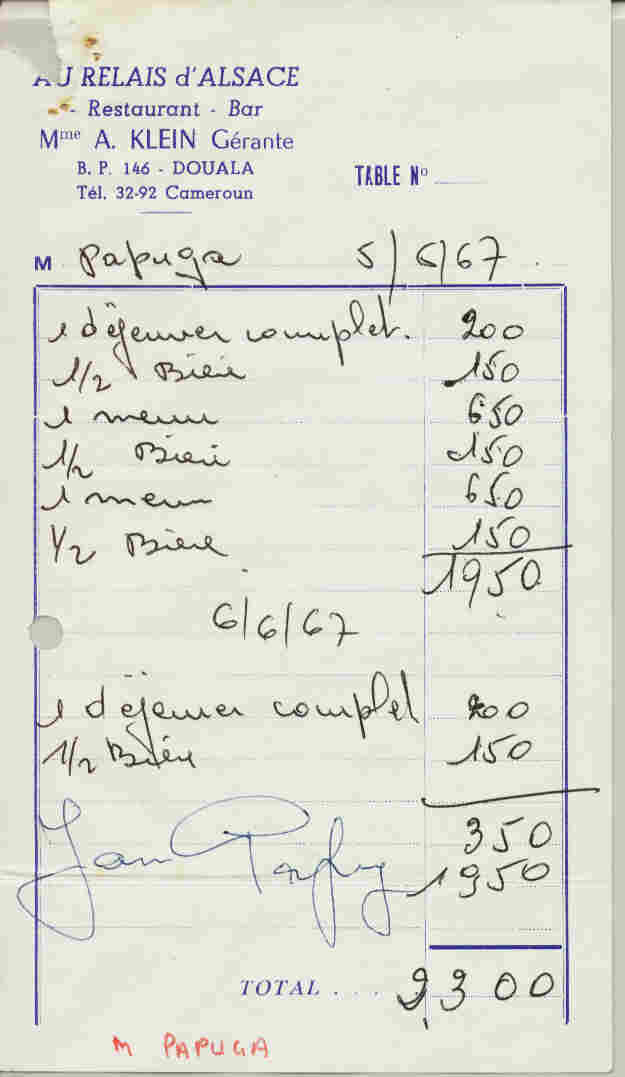 AU RELAIS d'ALSACE
- Restaurant - Bar
Mme A. KLEIN Gérante
B. P. 146 - DOUALA
Tél. 32-92 Cameroun
TABLE No
M Papuga 5/6/67
1 déjeuner complet. 200
1/2 Bière 150
1 menu 650
1/2 Bière 150
1 menu 650
1/2 Bière 150
1950
6/6/67
1 déjeuner complet 200
1/2 Bière 150
350
Jan Papuga 1950
TOTAL . . . 2300
M PAPUGA